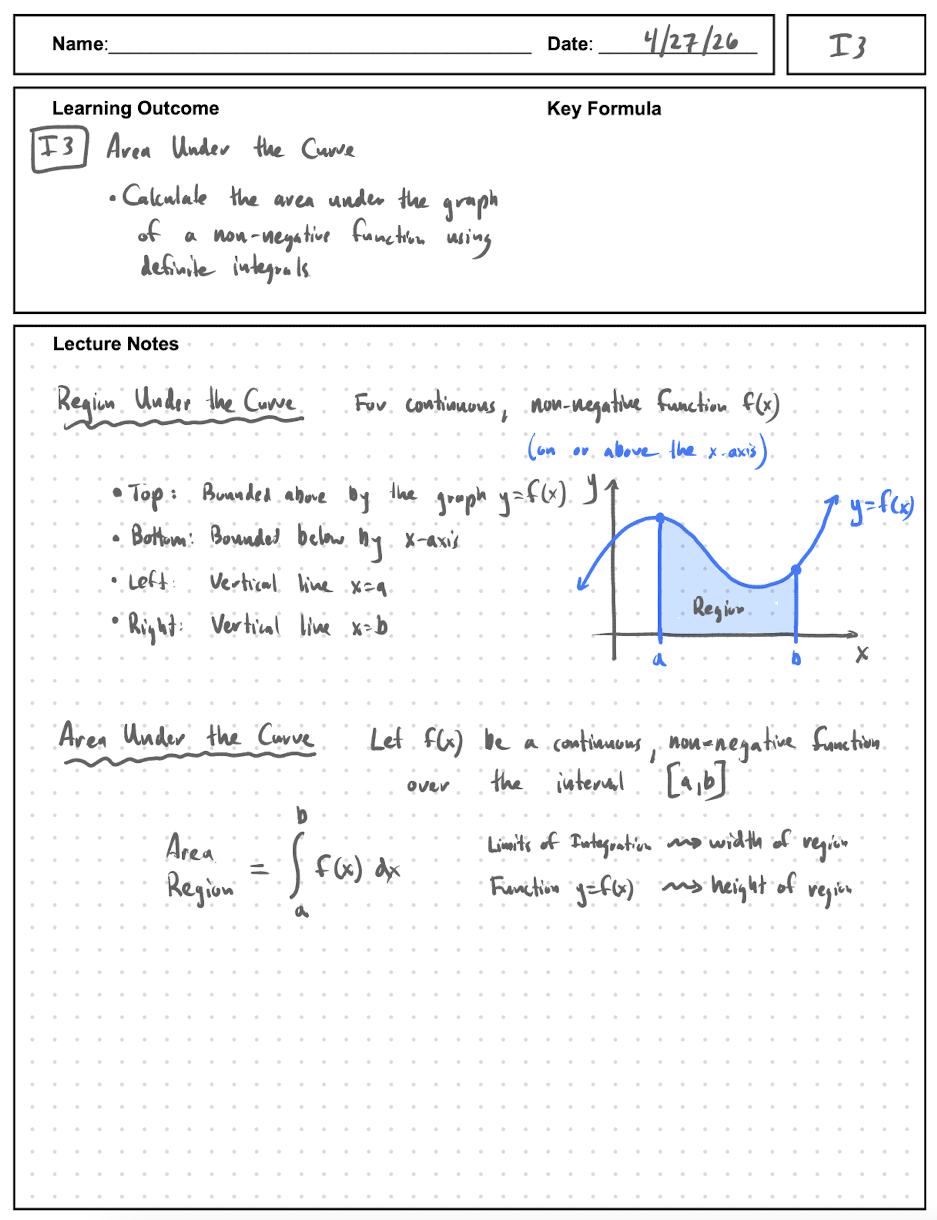 Name: Date: 4/27/26 I3
Learning Outcome Key Formula
I3 Area Under the Curve
• Calculate the area under the graph
of a non-negative function using
definite integrals
Lecture Notes
Region Under the Curve For continuous, non-negative function f(x)
(on or above the x-axis)
• Top: Bounded above by the graph y=f(x)
• Bottom: Bounded below by x-axis
• Left: Vertical line x=a
• Right: Vertical line x=b
y
y=f(x)
Region
a b x
Area Under the Curve Let f(x) be a continuous, non-negative function
over the interval [a,b]
Area Region = ∫_a^b f(x) dx
Limits of Integration ⇝ width of region
Function y=f(x) ⇝ height of region